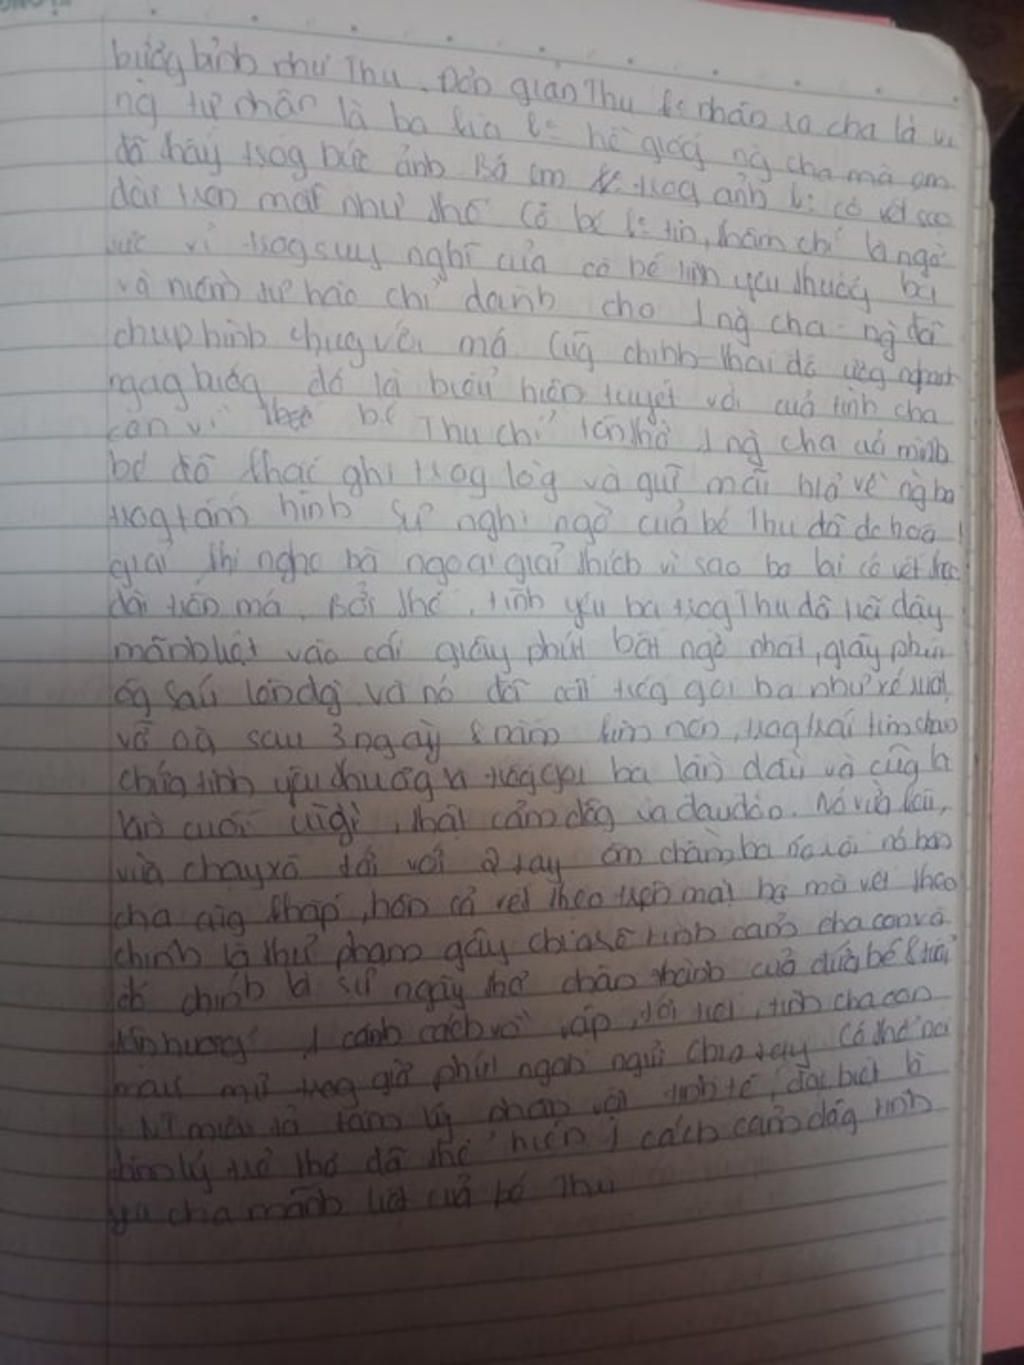 bướng bỉnh như Thu. Đơn giản Thu k nhận ra cha là vì
ng tự nhận là ba kia k hề giống ng cha mà em
đã thấy trog bức ảnh Bá em trog ảnh k có vết sẹo
dài trên mặt như thế cô bé k tin, thậm chí là ngờ
vực vì trog suy nghĩ của cô bé tình yêu thương
và niềm tự hào chỉ dành cho 1 ng cha - ng đã
chụp hình chug với má Cũg chính thái độ
ngag bướg đó là biểu hiện tuyệt vời cuả tình cha
con vì bé Thu chỉ tôn thờ 1 ng cha cuả mình
bé đã khắc ghi trog lòg và giữ mãi về ng ba
trog tấm hình Sự nghi ngờ cuả bé Thu đã đc hoá
giải khi nghe bà ngoại giải thích vì sao ba lại có vết thẹo
dài trên má. Bởi thế, tình yêu ba trog Thu đã trỗi dậy
mãnh liệt vào cái giây phút bất ngờ nhất, giây phút
ôg Sáu lên đg và nó đã cất tiếg gọi ba như xé ruột
vỡ oà sau 3 ngày 8 năm kìm nén, trog trái tim
chứa tình yêu thươg là tiếg gọi ba lần đầu và cũg là
lần cuối, thật cảm độg và đau đớn. Nó vừa kêu,
vừa chạy xô tới với 2 tay ôm chầm ba nó nó hôn
cha cùg khắp, hôn cả vết thẹo trên mặt ba mà vết thẹo
chính là thủ phạm gây chia rẽ tình cảm cha con và
đó chính là sự ngây thơ chân thành cuả đứa bé 8 tuổi
1 cánh cách vồ vập, tình cha con
trog giờ phút ngắn ngủi chia tay Có thể nói
NT miêu tả tâm lý nhân vật tinh tế, đặc biệt là
tâm lý trẻ thơ đã thể hiện 1 cách cảm độg tình
yêu cha mãnh liệt cuả bé Thu